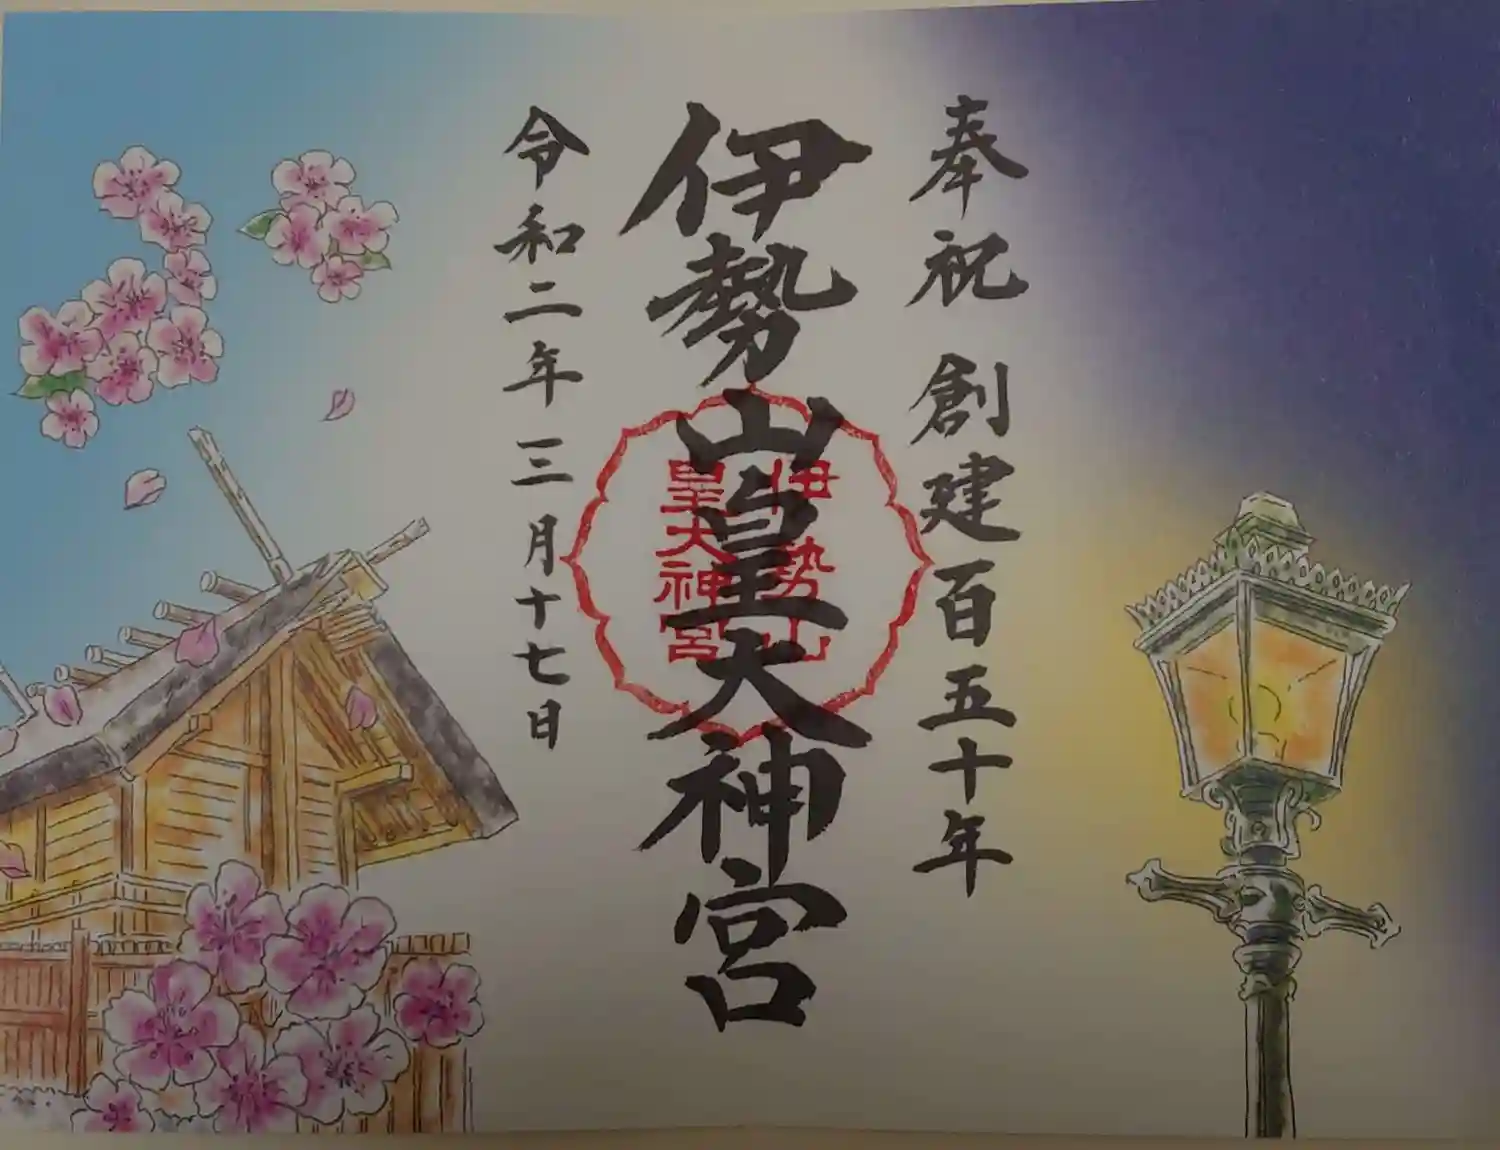 奉祝 創建百五十年
伊勢山皇大神宮
伊勢山
皇大神宮
令和二年三月十七日